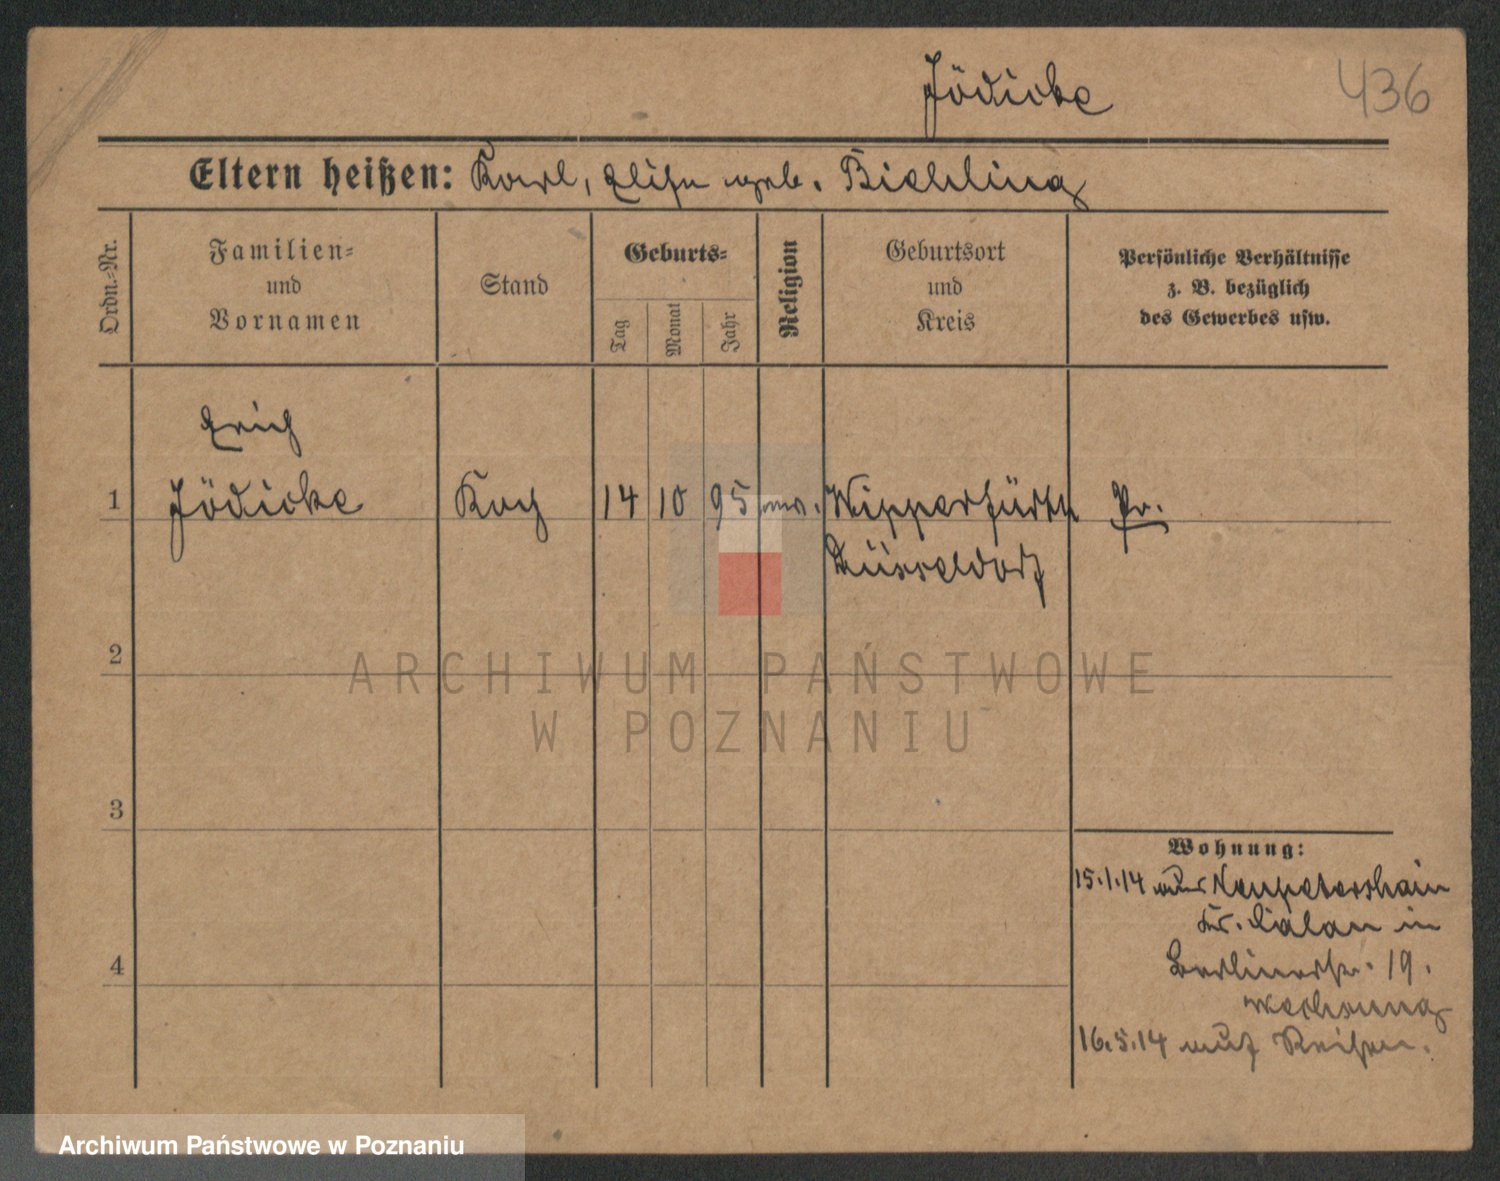 Jödicke
436
Eltern heißen: Karl, Elise geb. Biehling
Ordn.=Nr.
Familien=
und
Vornamen
Stand
Geburts=
Tag
Monat
Jahr
Religion
Geburtsort
und
Kreis
Persönliche Verhältnisse
z. B. bezüglich
des Gewerbes usw.
Erich
1 Jödicke Koch 14 10 95 ev. Wipperfürth Pr.
Düsseldorf
2
3
4
Wohnung:
15.1.14 aus Neupetershain
Kr. Calau in
Berlinerstr. 19.
16.5.14 auf Reisen.
ARCHIWUM PAŃSTWOWE
W POZNANIU
Archiwum Państwowe w Poznaniu